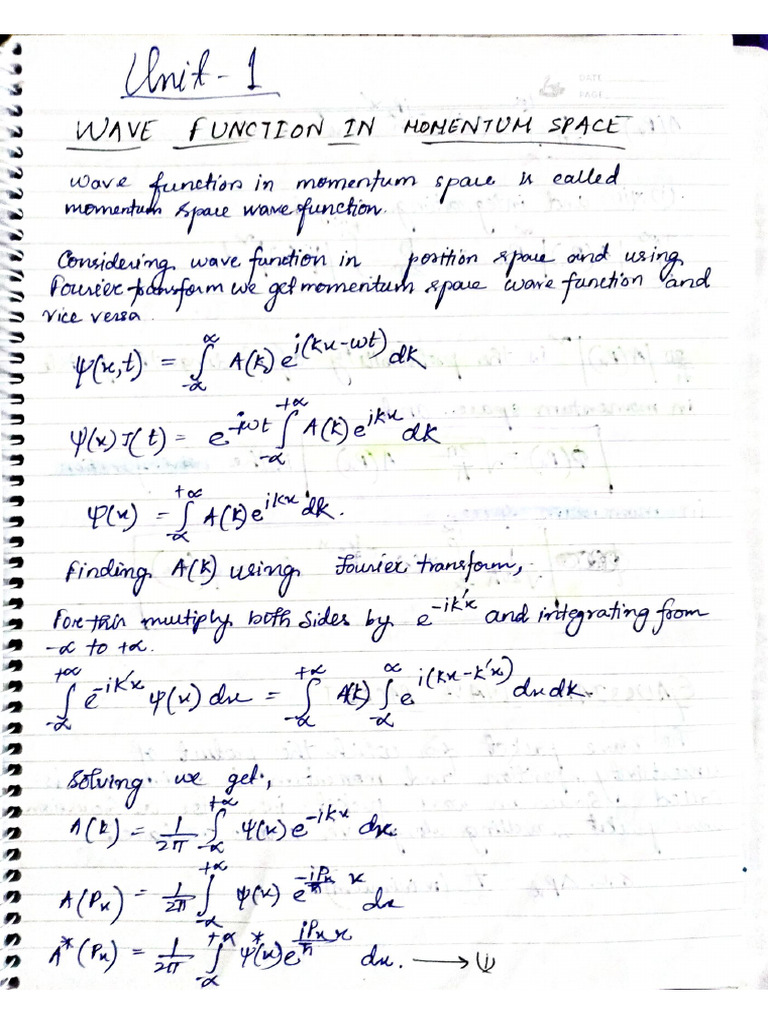 Unit - 1
DATE
PAGE
WAVE FUNCTION IN MOMENTUM SPACE
Wave function in momentum space is called
momentum space wave function.
Considering wave function in position space and using
Fourier transform we get momentum space wave function and
vice versa.
ψ(x,t) = ∫_{-∝}^{∝} A(k) e^{i(kx-ωt)} dk
ψ(x)T(t) = e^{-iωt} ∫_{-∝}^{+∝} A(k) e^{ikx} dk
ψ(x) = ∫_{-∝}^{+∝} A(k) e^{ikx} dk.
Finding A(k) using Fourier transform,
For this multiply both sides by e^{-ik'x} and integrating from
-∝ to +∝.
∫_{-∝}^{+∝} e^{-ik'x} ψ(x) dx = ∫_{-∝}^{+∝} A(k) ∫_{-∝}^{∝} e^{i(kx-k'x)} dx dk.
Solving we get,
A(k) = 1/2π ∫_{-∝}^{+∝} ψ(x) e^{-ikx} dx.
A(Px) = 1/2π ∫_{-∝}^{+∝} ψ(x) e^{-iPx/ħ x} dx
A*(Px) = 1/2π ∫_{-∝}^{+∝} ψ*(x) e^{iPx/ħ x} dx. → (1)